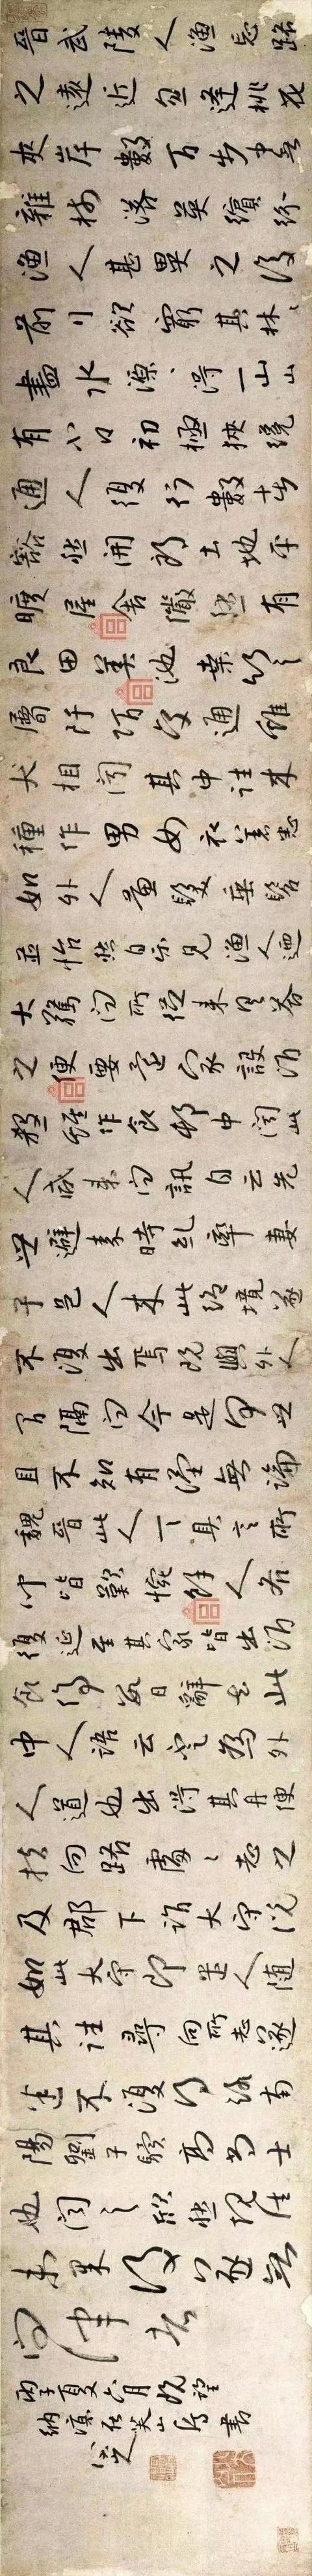 晉武陵人漁忘路
之遠近忽逢桃花
夾岸數百步中無
雜樹落英繽紛
漁人甚異之復
前行欲窮其林〻
盡水源得一山山
有小口初極狹纔
通人復行數十步
豁然開朗土地平
曠屋舍儼然有
良田美池桑竹之
屬阡陌交通雞
犬相聞其中往來
種作男女衣著悉
如外人黃髮垂髫
並怡然自樂見漁人迺
大驚問所從來具答
之便要還家設酒
殺雞作食邨中聞此
人咸來問訊自云先
世避秦時亂率妻
子邑人來此絕境遂
不復出焉既與外人
間隔問今是何世
且不知有漢無論
魏晉此人一一具言所
聞皆歎惋餘人各
復延至其家皆出酒
食停數日辭去此
中人語云不足為外
人道也出得其舟便
扶向路處〻志之
及郡下詣太守說
如此太守即遣人隨
其往尋向所志遂
迷不復得路南
陽劉子驥高尚士
也聞之欣然規往
未果後遂無
問津者
丙子夏六月既望
納涼在芙山房書
八大山人